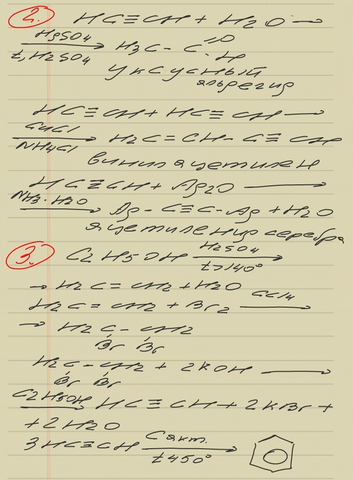 2. HC≡CH + H2O →
HgSO4
t, H2SO4 → H3C - C =O H
уксусный
альдегид
HC≡CH + HC≡CH →
CuCl
NH4Cl → H2C=CH-C≡CH
винилацетилен
HC≡CH + Ag2O →
NH3·H2O → Ag-C≡C-Ag + H2O
ацетиленид серебра
3. C2H5OH H2SO4 t>140° →
→ H2C=CH2 + H2O
H2C=CH2 + Br2 CCl4 →
→ H2C-CH2
Br Br
H2C-CH2 + 2KOH →
Br Br
C2H5OH → HC≡CH + 2KBr +
+ 2H2O
3HC≡CH C акт. t450° →